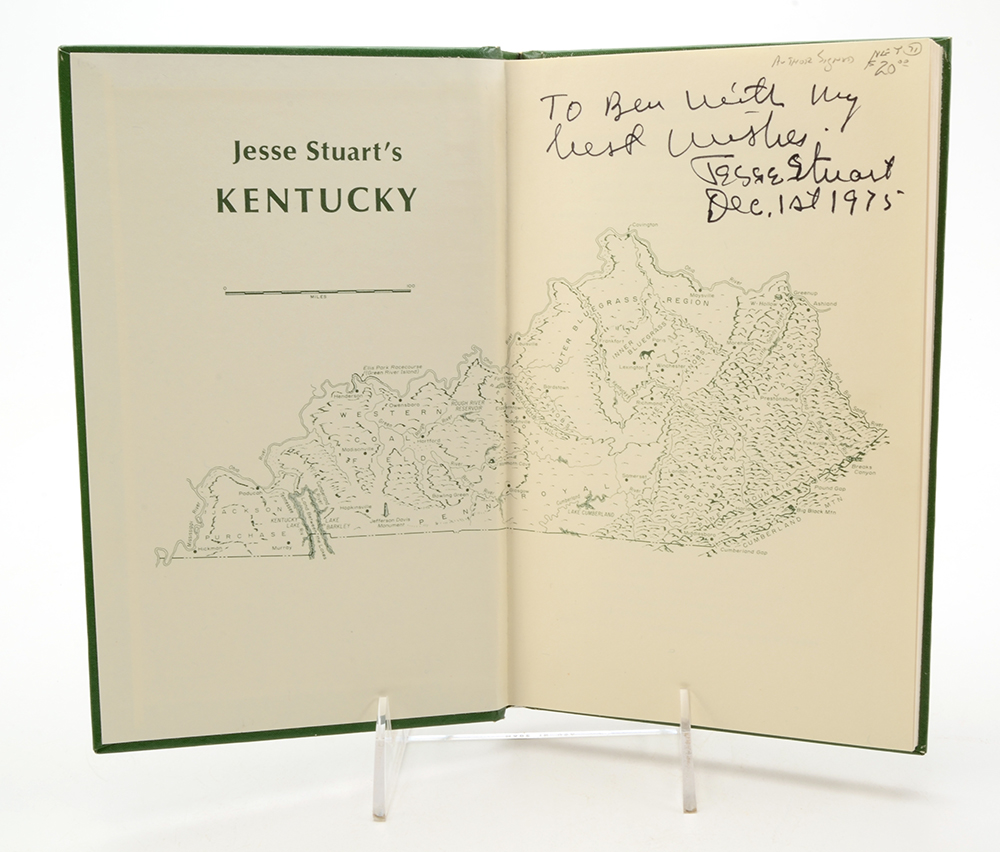 Jesse Stuart's
KENTUCKY
0 100
MILES
AUTHOR SIGNED
20.00
To Ben With My
best wishes.
Jesse Stuart
Dec. 1st 1975
Covington
Ohio River
Maysville
W-Hollow
Greenup
Ashland
OUTER BLUEGRASS REGION
INNER BLUEGRASS
Louisville
Frankfort
Lexington
Winchester
Bardstown
Prestonsburg
Ellis Park Racecourse
(Green River Island)
Henderson
Owensboro
ROUGH RIVER
RESERVOIR
WESTERN
COAL
FIELD
Madisonville
Hartford
Bowling Green
Hopkinsville
Jefferson Davis
Monument
PENNYROYAL
Somerset
LAKE CUMBERLAND
Breaks
Canyon
Pound Gap
Big Black Mtn
CUMBERLAND MTN
Cumberland Gap
Paducah
JACKSON
PURCHASE
KENTUCKY
LAKE
LAKE
BARKLEY
Hickman
Murray